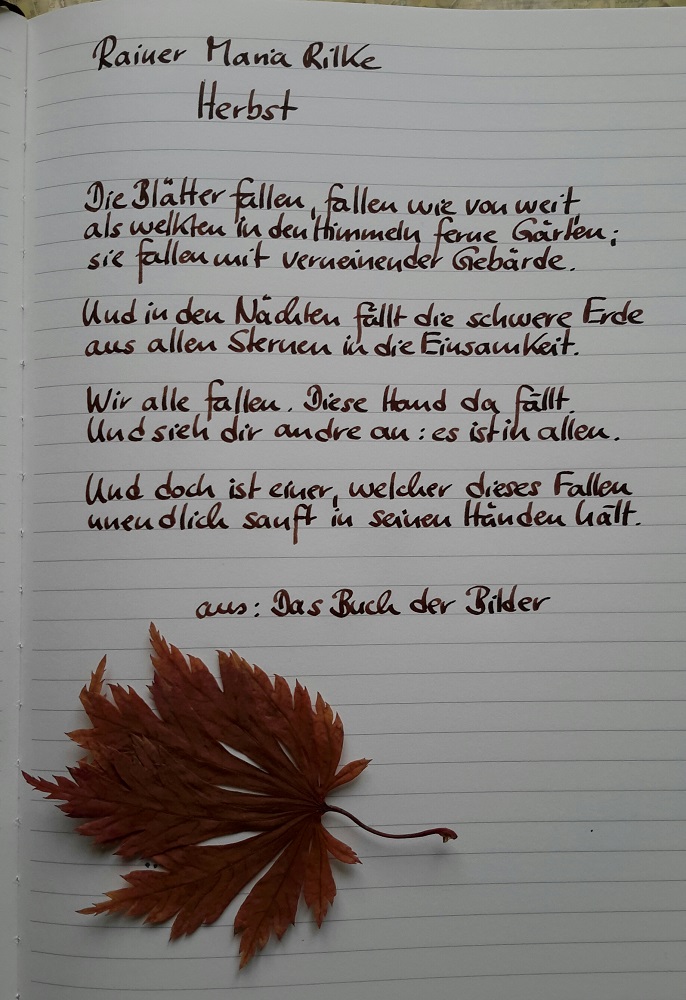 Rainer Maria Rilke
Herbst
Die Blätter fallen, fallen wie von weit,
als welkten in den Himmeln ferne Gärten;
sie fallen mit verneinender Gebärde.
Und in den Nächten fällt die schwere Erde
aus allen Sternen in die Einsamkeit.
Wir alle fallen. Diese Hand da fällt.
Und sieh dir andre an: es ist in allen.
Und doch ist einer, welcher dieses Fallen
unendlich sanft in seinen Händen hält.
aus: Das Buch der Bilder